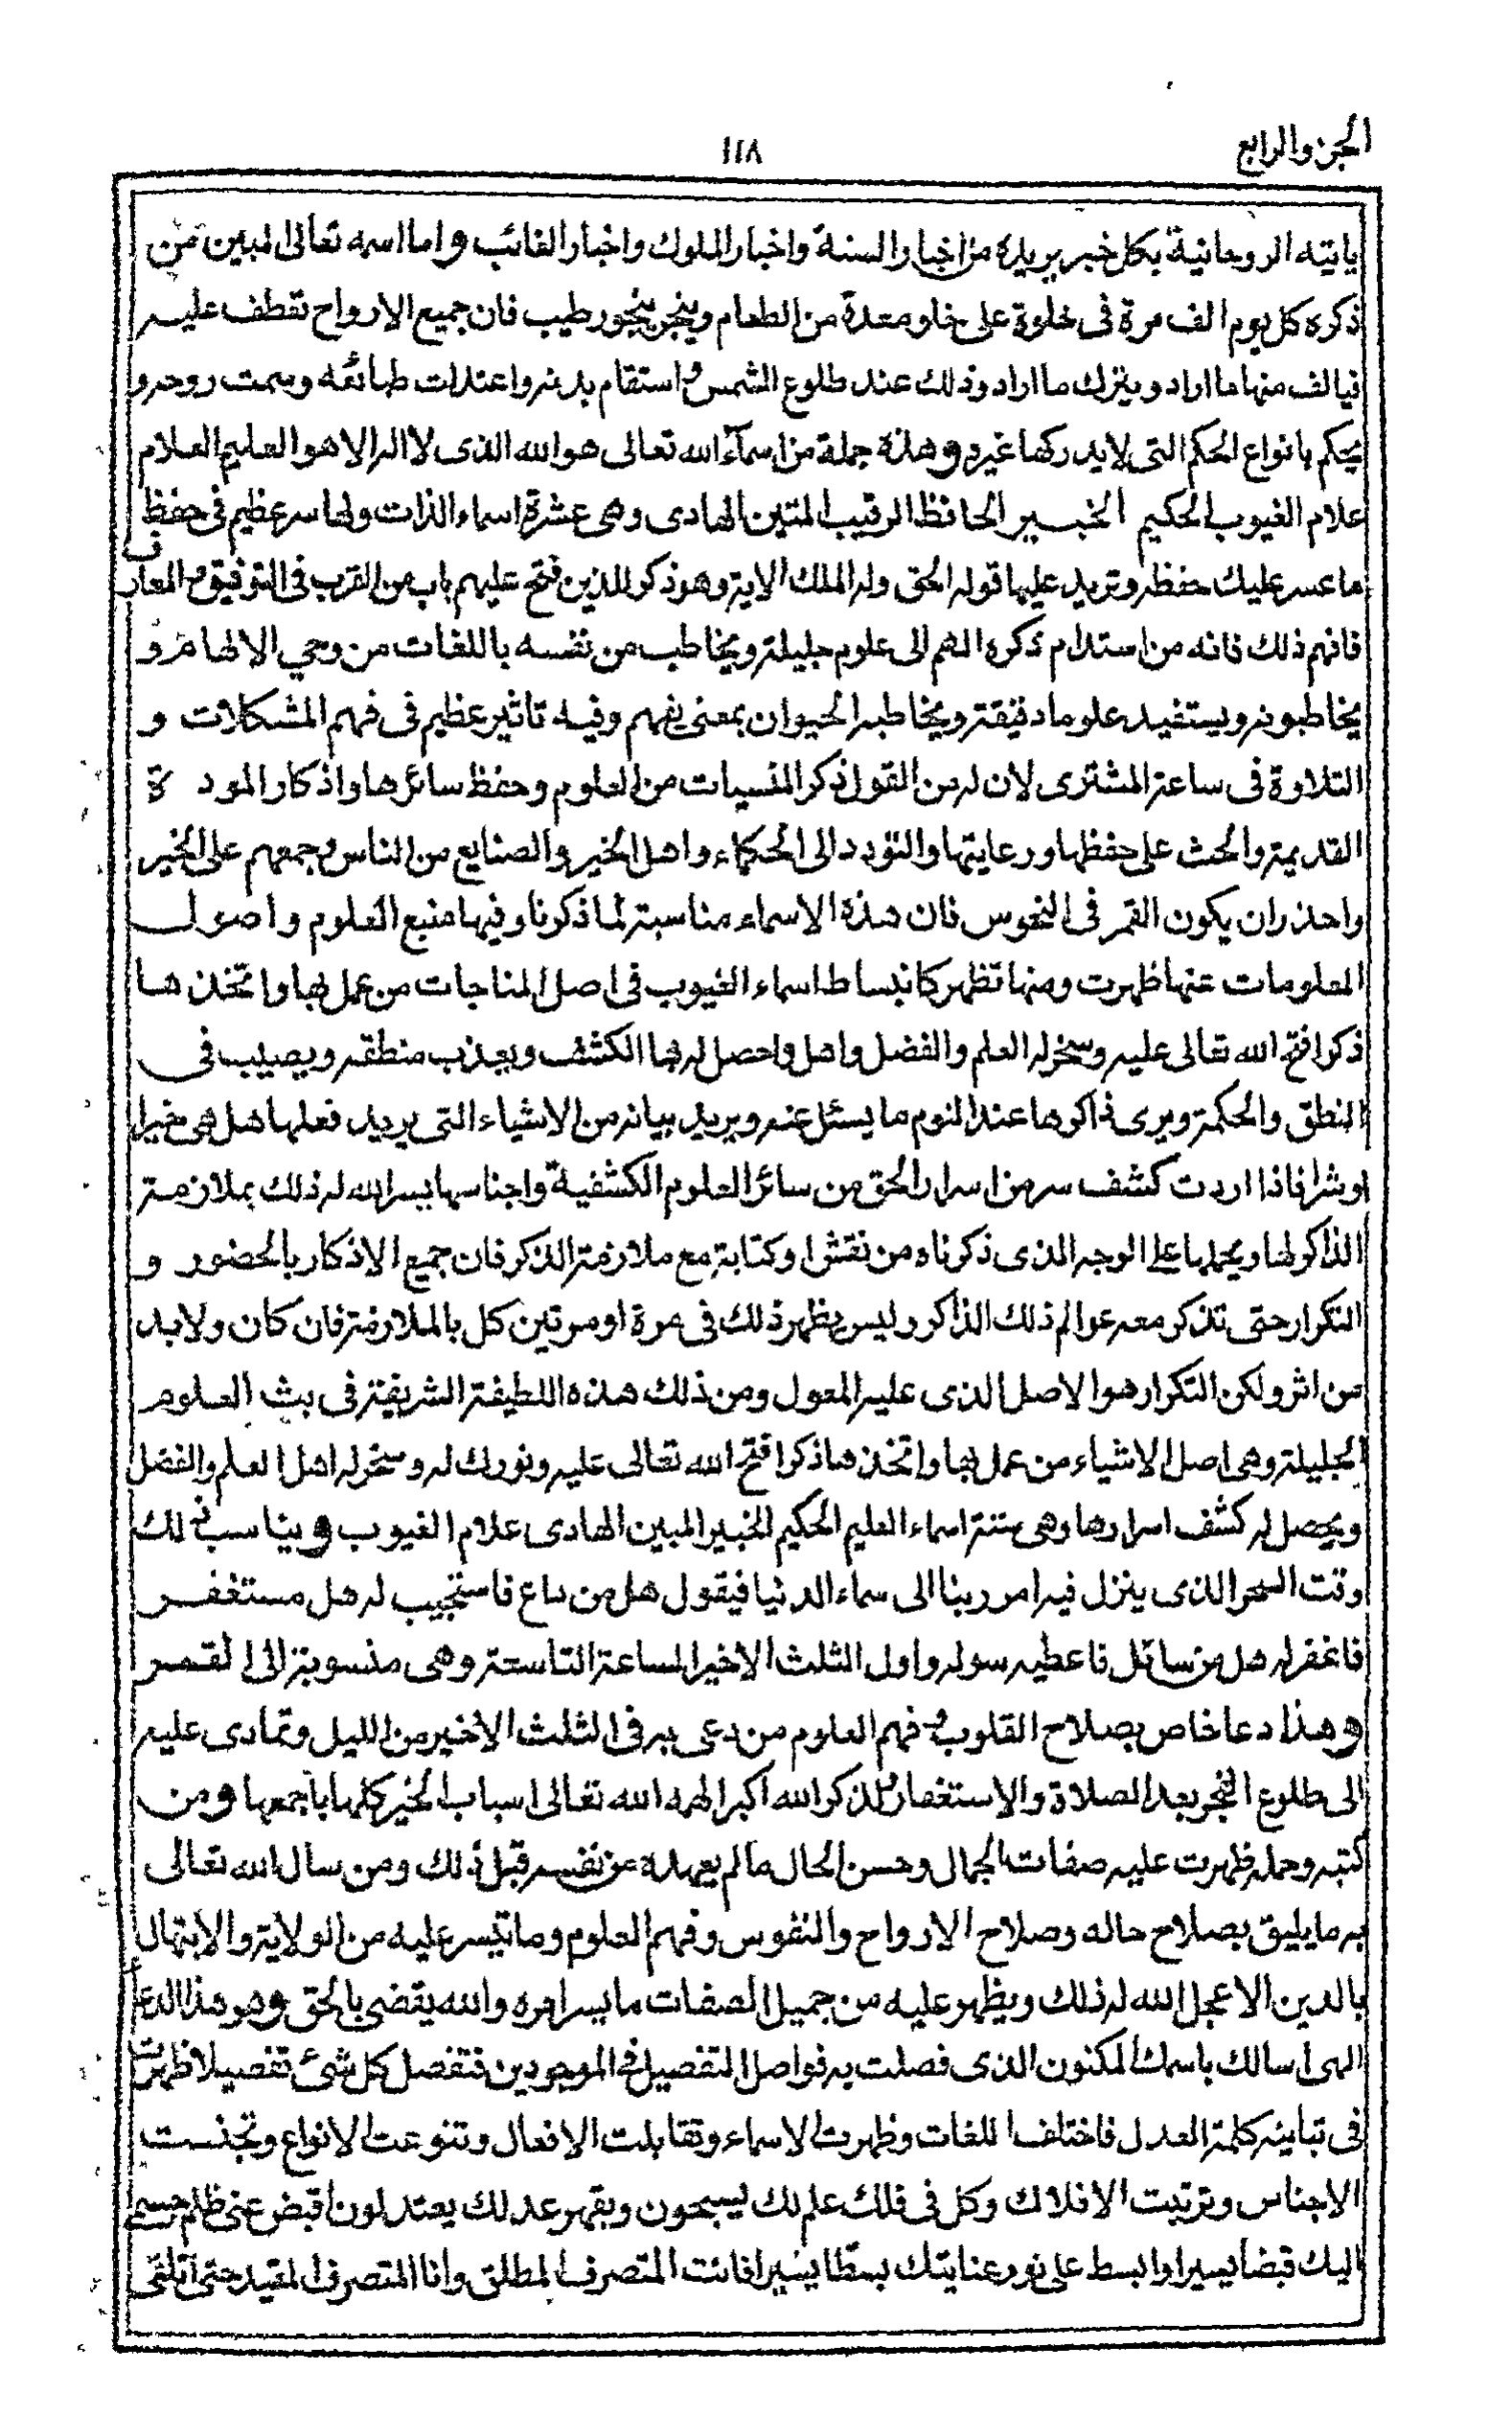 الجزء الرابع
١١٨
ياتيه الروحانية بكل خبر يريده من اخبار السنة واخبار الملوك واخبار الغائب واما اسمه تعالى المبين من
ذكره كل يوم الف مرة فى خلوة على خلو معدة من الطعام ويبخر ببخور طيب فان جميع الارواح تقطف عليه
فيالف منها ما اراد ويترك ما اراد وذلك عند طلوع الشمس واستقام بدنه واعتدلت طبائعه وسمت روحه و
يحكم بانواع الحكم التى لايدركها غيره وهذه جملة من اسمآء الله تعالى هو الله الذى لا اله الا هو العليم العلام
علام الغيوب الحكيم الخبير الحافظ الرقيب المتين الهادى وهى عشرة اسماء الذات ولها سر عظيم فى حفظ
ما عسر عليك حفظه وتريد عليها قوله الحق وله الملك الاية وهو ذكر للذين فتح عليهم باب من القرب فى التوفيق والمعارف
فافهم ذلك فانه من استدام ذكره الهم الى علوم جليلة ويخاطب من نفسه باللغات من وحي الالهام و
يخاطبونه ويستفيد علوما دقيقة ويخاطبه الحيوان بمعنى يفهم وفيه تاثير عظيم فى فهم المشكلات و
التلاوة فى ساعة المشترى لان له من القول ذكر المنسيات من العلوم وحفظ سائرها واذكار المودة
القديمة والحث على حفظها ورعايتها والتودد الى الحكماء واهل الخير والصنايع من الناس وجمعهم على الخير
واحذر ان يكون القمر فى النحوس فان هذه الاسماء مناسبة لما ذكرنا وفيها منبع العلوم واصول
المعلومات عنها ظهرت ومنها تظهر كانبساط اسماء الغيوب فى اصل المناجات من عمل بها واتخذها
ذكرا فتح الله تعالى عليه وسخر له العلم والفضل واهل واحصل له بها الكشف ويعذب منطقه ويصيب فى
النطق والحكمة ويرى ذاكرها عند النوم ما يسئل عنه ويريد بيانه من الاشياء التى يريد فعلها هل هى خيرا
او شرا فاذا اردت كشف سر من اسرار الحق من سائر العلوم الكشفية واجناسها يسر الله له ذلك بملازمة
الذاكر لها ويحملها على الوجه الذى ذكرناه من نقش او كتابة مع ملازمة الذكر فان جميع الاذكار بالحضور و
التكرار حتى تذكر معه عوالم ذلك الذاكر وليس يظهر ذلك فى مرة او مرتين كل بالملازمة فان كان ولابد
من اثر ولكن التكرار هو الاصل الذى عليه المعول ومن ذلك هذه اللطيفة الشريفة فى بث العلوم
الجليلة وهى اصل الاشياء من عمل بها واتخذها ذكرا فتح الله تعالى عليه وبورك له وسخر له اهل العلم والفضل
ويحصل له كشف اسرارها وهى ستة اسماء العليم الحكيم الخبير المبين الهادى علام الغيوب ويناسب ذلك
وقت السحر الذى ينزل فيه امر ربنا الى سماء الدنيا فيقول هل من داع فاستجيب له هل مستغفر
فاغفر له هل من سائل فاعطيه سوله واول الثلث الاخير الساعة التاسعة وهى منسوبة الى القمر
وهذا دعا خاص بصلاح القلوب وفهم العلوم من دعى به فى الثلث الاخير من الليل وتمادى عليه
الى طلوع الفجر بعد الصلاة والاستغفار لذكر الله اكبر الهمه الله تعالى اسباب الخير كلها باجمعها ومن
كتبه وحمله ظهرت عليه صفات الجمال وحسن الحال ما لم يعهده من نفسه قبل ذلك ومن سال الله تعالى
به ما يليق بصلاح حاله وصلاح الارواح والنفوس وفهم العلوم وما تيسر عليه من الولاية والابتهال
بالدين الا عجل الله له ذلك ويظهر عليه من جميل الصفات ما يسر امره والله يقضى بالحق وهو هذا الدعا
الهى اسالك باسمك المكنون الذى فصلت به فواصل التفصيل فى الموجودين فتفصل كل شئ تفصيلا ظهرت
فى تباينه كلمة العدل فاختلف اللغات وظهرت الاسماء وتقابلت الافعال وتنوعت الانواع وتجنست
الاجناس وترتبت الافلاك وكل فى فلك علمك يسبحون وبقهر عدلك يعتدلون اقبض عنى ظلم جسمى
اليك قبضا يسيرا وابسط على نور عنايتك بسطا يسيرا فانت المتصرف المطلق وانا المتصرف المقيد حتى اتلقى